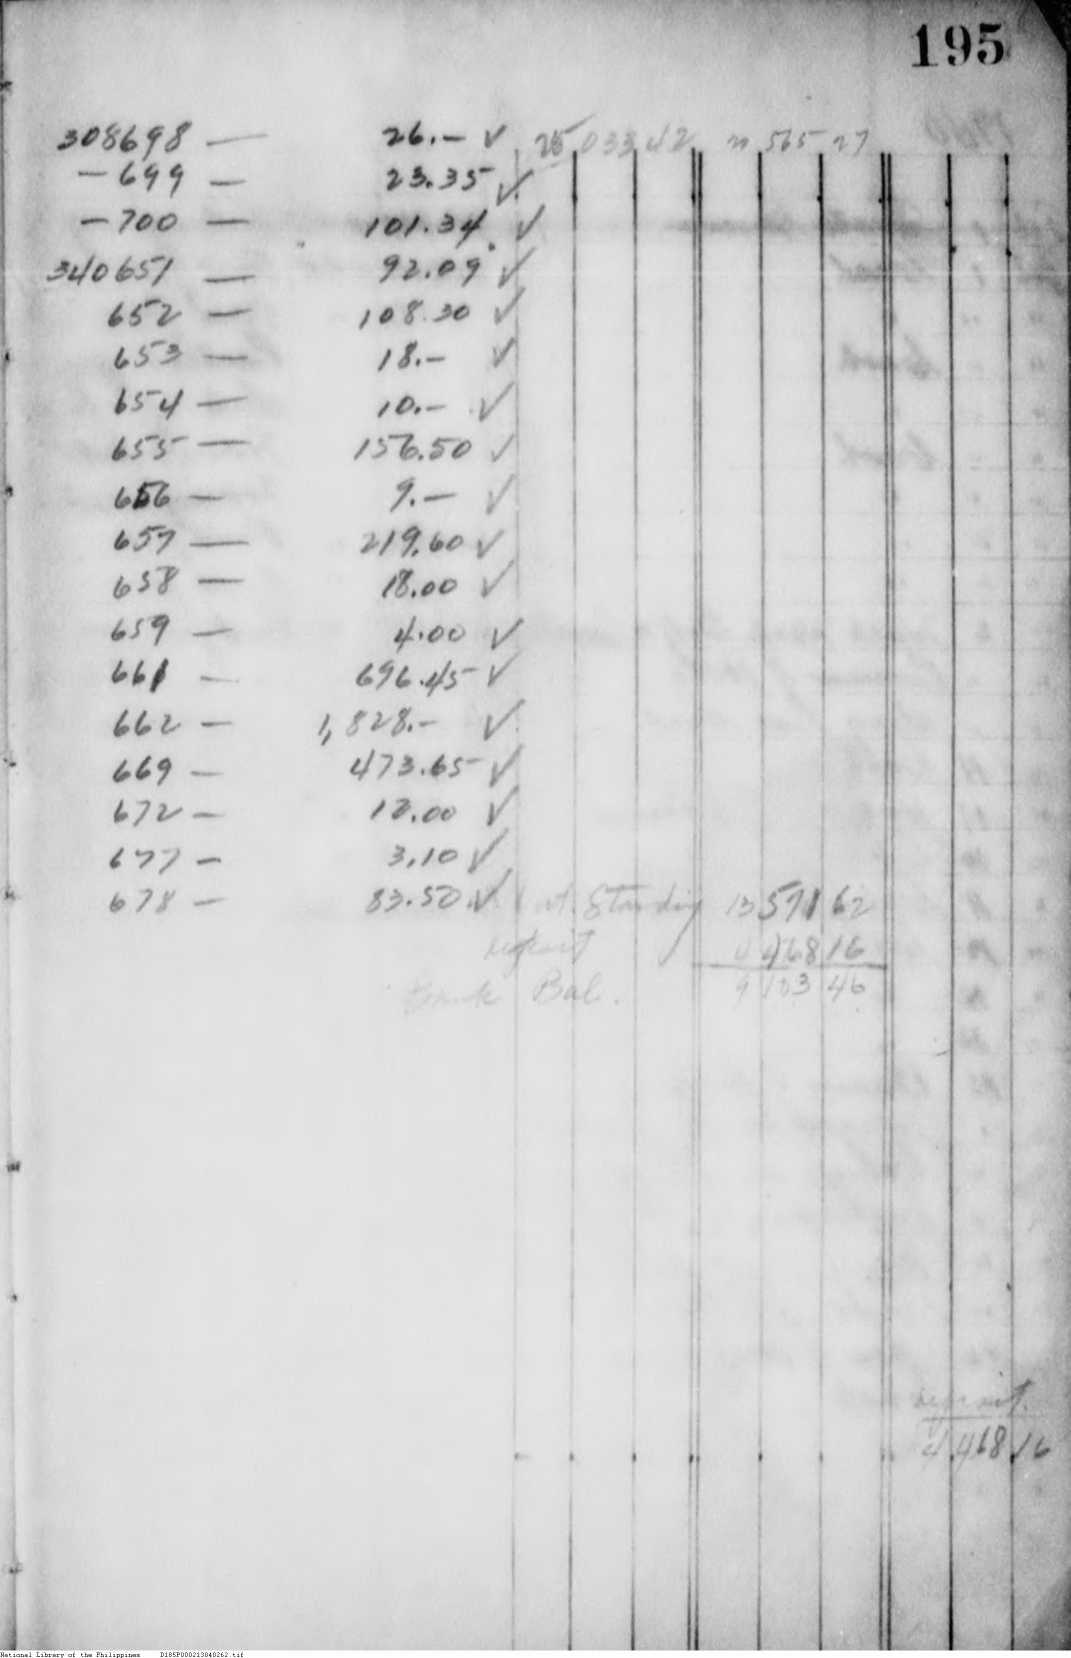 195
308698 — 26.— ✓ 25 033 42 21 565 27
— 699 — 23.35 ✓
— 700 — 101.34 ✓
340651 — 92.09 ✓
652 — 108.30 ✓
653 — 18.— ✓
654 — 10.— ✓
655 — 156.50 ✓
656 — 9.— ✓
657 — 219.60 ✓
658 — 18.00 ✓
659 — 4.00 ✓
661 — 696.45 ✓
662 — 1,828.— ✓
669 — 473.65 ✓
672 — 12.00 ✓
677 — 3.10 ✓
678 — 83.50 ✓ out Standing 13 571 62
deposit 4 468 16
Bank Bal. 9 103 46
deposit.
4 468 16
National Library of the Philippines D185P000213040262.tif